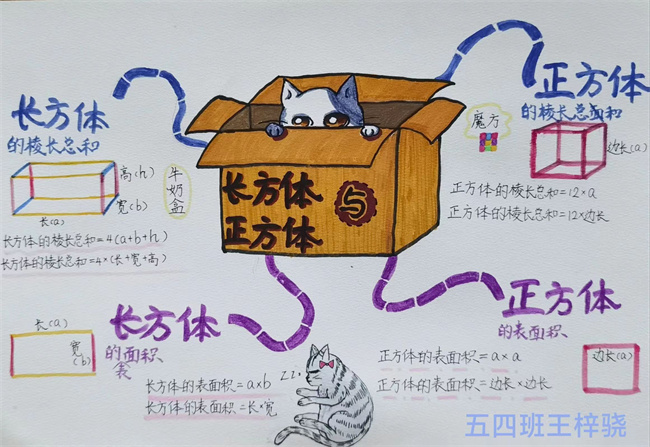 长方体
的棱长总和
高(h)
宽(b)
长(a)
牛奶盒
长方体的棱长总和=4(a+b+h)
长方体的棱长总和=4×(长+宽+高)
长方体
与
正方体
正方体
的棱长总面和
魔方
边长(a)
正方体的棱长总和=12×a
正方体的棱长总和=12×边长
长方体
的面积
表
长(a)
宽(b)
长方体的表面积=a×b
长方体的表面积=长×宽
zz..
正方体
的表面积
正方体的表面积=a×a
正方体的表面积=边长×边长
边长(a)
五四班王梓骁